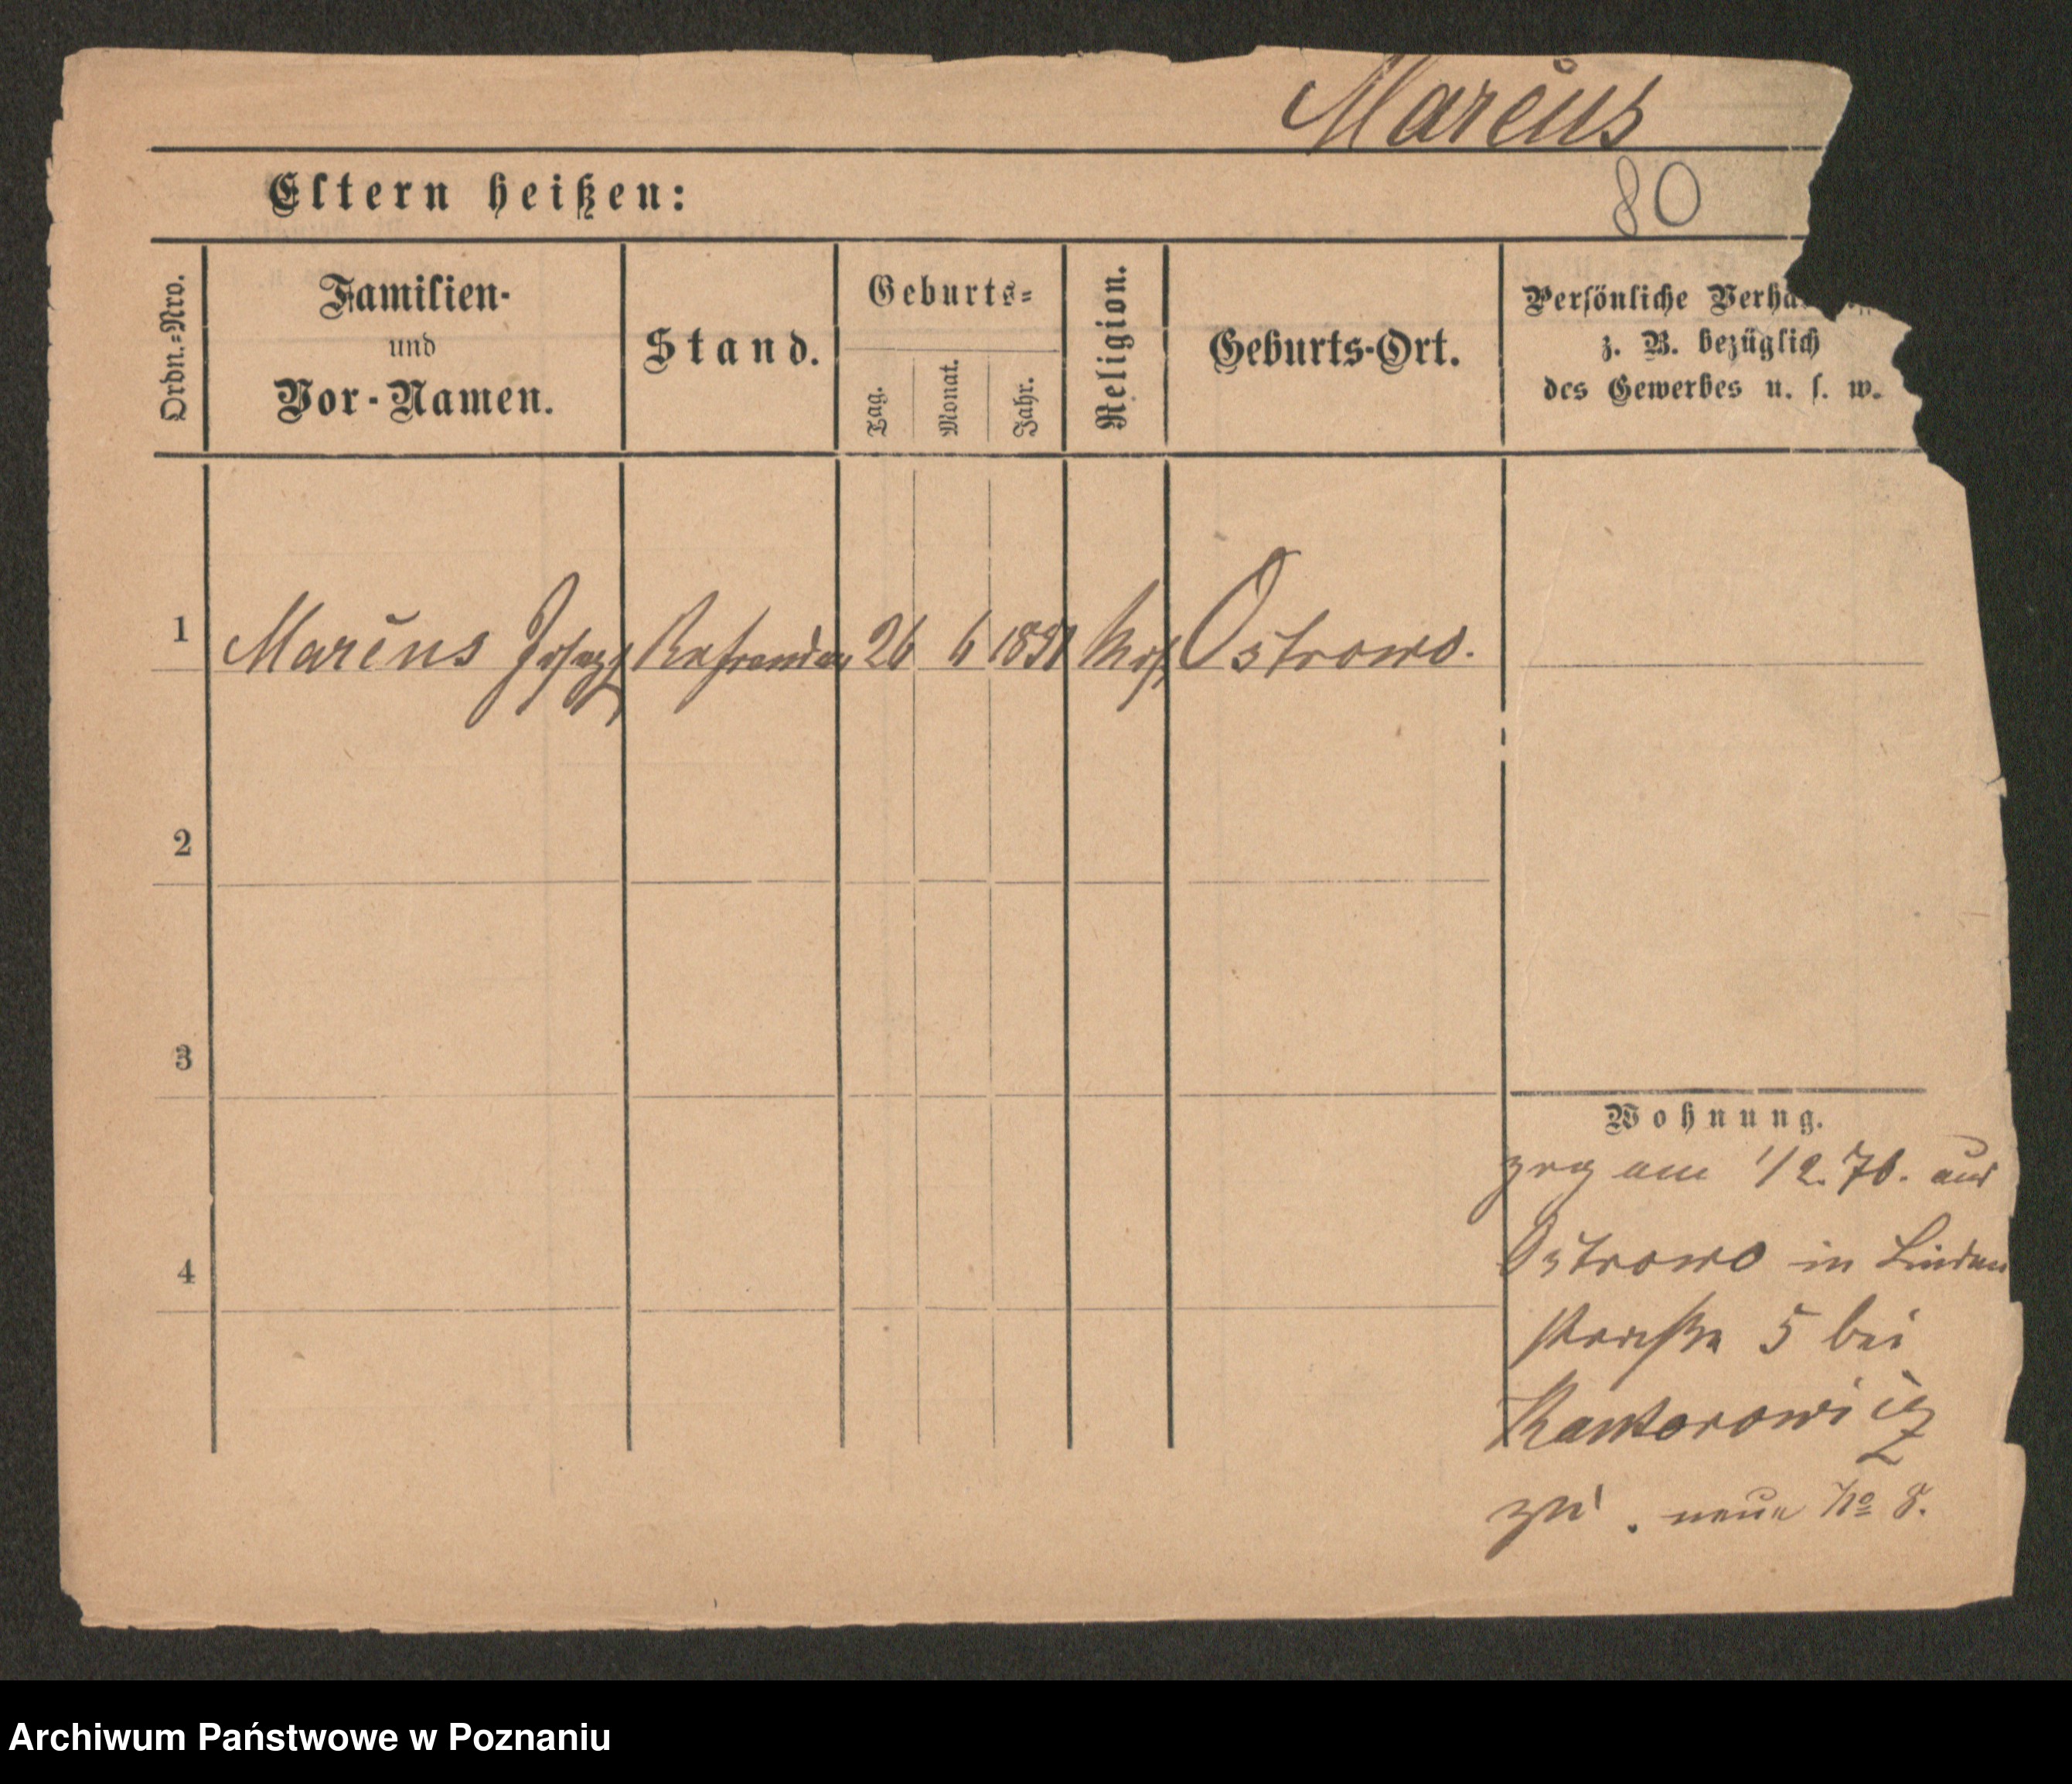 Marcus
Eltern heißen:
80
Ordn.=Nro.
Familien-
und
Vor-Namen.
Stand.
Geburts=
Tag.
Monat.
Jahr.
Religion.
Geburts-Ort.
Persönliche Verhä
z. B. bezüglich
des Gewerbes u. s. w.
1
Marcus Joseph Referendar 26 6 Mos Ostrowo.
2
3
4
Wohnung.
zog am 1/2. 76. aus
Ostrowo in Linden
straße 5 bei
Kantorowicz
zu. neue No 8.
Archiwum Państwowe w Poznaniu